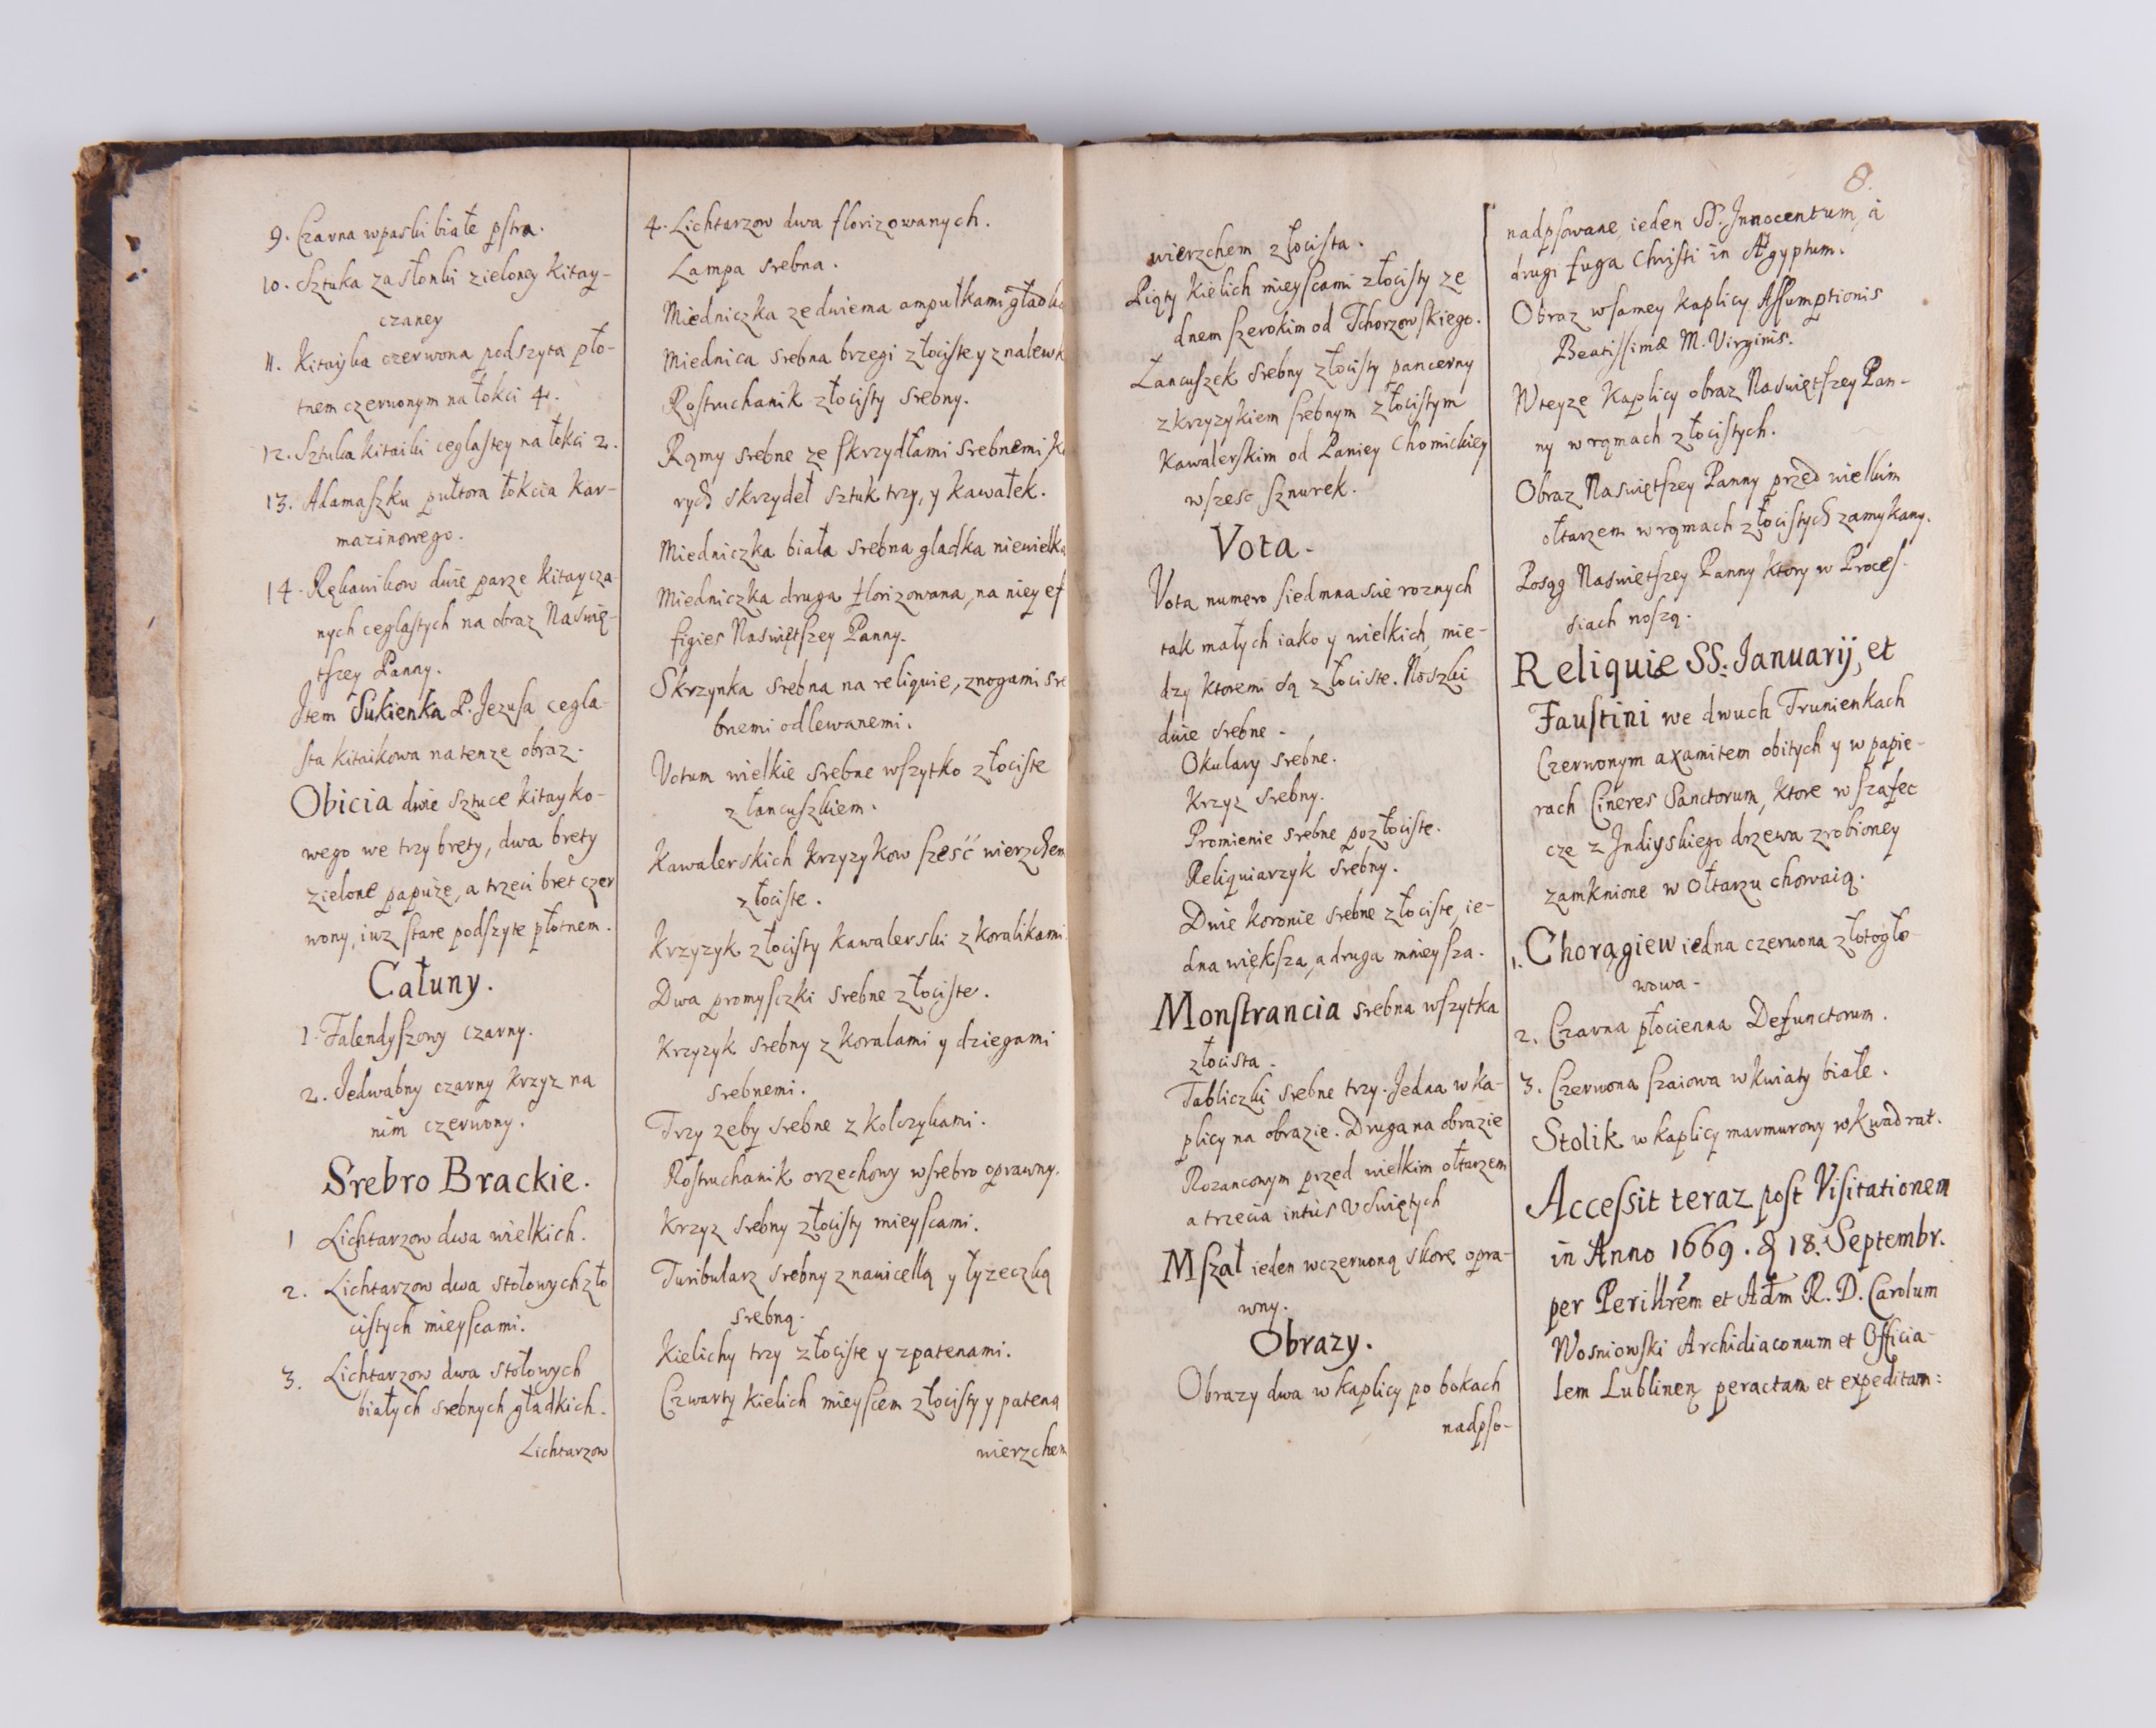 9. Czarna w paski białe pstra.
10. Sztuka zasłonki zieloney kitay-
czaney
11. Kitayka czerwona podszyta pło-
tnem czerwonym na łokci 4.
12. Sztuka kitaiki ceglastey na łokci 2.
13. Adamaſzku pułtora łokcia kar-
mazinowego.
14. Rękawikow dwie parze kitaycza-
nych ceglaſtych na obraz Naswię-
tſzey Panny.
Item Sukienka P. Jezuſa cegla-
ſta kitaikowa na tenze obraz.
Obicia dwie sztuce kitayko-
wego we trzy brety, dwa brety
zielone papuże, a trzeci bret czer
wony, iuz ſtare podſzyte płotnem.
Całuny.
1. Falendyſzowy czarny.
2. Jedwabny czarny krzyz na
nim czerwony.
Srebro Brackie.
1 Lichtarzow dwa wielkich.
2. Lichtarzow dwa stołowych zło
ciſtych mieyſcami.
3. Lichtarzow dwa stołowych
białych srebnych gładkich.
Lichtarzow
4. Lichtarzow dwa florizowanych.
Lampa srebna.
Miedniczka ze dwiema ampułkami gładko
Miednica srebna brzegi złociſte y z nalewk
Roſtruchanik złociſty srebny.
Rąmy srebne ze ſkrzydłami srebnemi, k
rych skrzydeł sztuk trzy, y kawałek.
Miedniczka biała srebna gladka niewielka
Miedniczka druga florizowana, na niey ef
figies Naswiętſzey Panny.
Skrzynka srebna na reliquie, z nogami sre
bnemi odlewanemi.
Votum wielkie srebne wſzytko złociſte
z łancuſzkiem.
Kawalerskich krzyzykow ſześć wierzchem
złociſte.
Krzyzyk złociſty kawalerski z koralikami
Dwa promyſczki srebne złociſte.
Krzyzyk srebny z koralami y dziegami
srebnemi.
Trzy zeby srebne z kolczykami.
Roſtruchanik orzechowy w srebro oprawny.
Krzyz srebny złociſty mieyſcami.
Turibularz srebny z nawicellą y łyzeczką
srebną.
Kielichy trzy złociſte y z patenami.
Czwarty kielich mieyſcem złociſty y pateną
wierzchem
8.
wierzchem złociſta.
Piąty kielich mieyſcami złociſty ze
dnem ſzerokim od Tchorzowſkiego.
Łancuſzek srebny złociſty pancerny
z krzyzykiem ſrebnym złociſtym
Kawalerſkim od Paniey Chomickiey
w ſzesc ſznurek.
Vota.
Vota numero ſiedmnascie roznych
tak małych iako y wielkich, mie-
dzy ktoremi są złociste. Noszki
dwie srebne.
Okulary srebne.
Krzyz srebny.
Promienie srebne pozłociſte.
Reliquiarzyk srebny.
Dwie koronie srebne złociſte, ie-
dna więkſza, a druga mnieyſza.
Monſtrancia srebna wſzytka
złocista.
Tabliczki srebne trzy. Jedna w ka-
plicy na obrazie. Druga na obrazie
Rozancowym przed wielkim ołtarzem
a trzecia intus V Swiętych
Mſzał ieden w czerwoną skorę opra-
wny.
Obrazy.
Obrazy dwa w kaplicy po bokach
nadpſo-
nadpſowane, ieden SS. Innocentum, á
drugi fuga Chriſti in Ægyptum.
Obraz w ſamey kaplicy Aſſumptionis
Beatiſſimæ M. Virginis.
W teyze Kaplicy obraz Naswiętſzey Pan-
ny w rąmach złociſtych.
Obraz Naswiętſzey Panny przed wielkim
ołtarzem w rąmach złociſtych zamykany.
Posąg Naswiętſzey Panny ktory w Proceſ-
siach noſzą.
Reliquiæ SS. Januarij, et
Fauſtini we dwuch Trunienkach
Czerwonym axamitem obitych y w papie-
rach Cineres Sanctorum, ktore w ſzafec
cze z Indiyskiego drzewa zrobioney
zamknione w ołtarzu chowaią.
1. Chorągiew iedna czerwona złotogło-
wowa.
2. Czarna płocienna Defunctorum.
3. Czerwona ſzaiowa w kwiaty białe.
Stolik w kaplicy marmurowy w kwadrat.
Acceſsit teraz poſt Viſitationem
in Anno 1669. 18. Septembr.
per Perillrem et Adm R. D. Carolum
Wosniowſki Archidiaconum et Officia-
lem Lublinen peractam et expeditam: